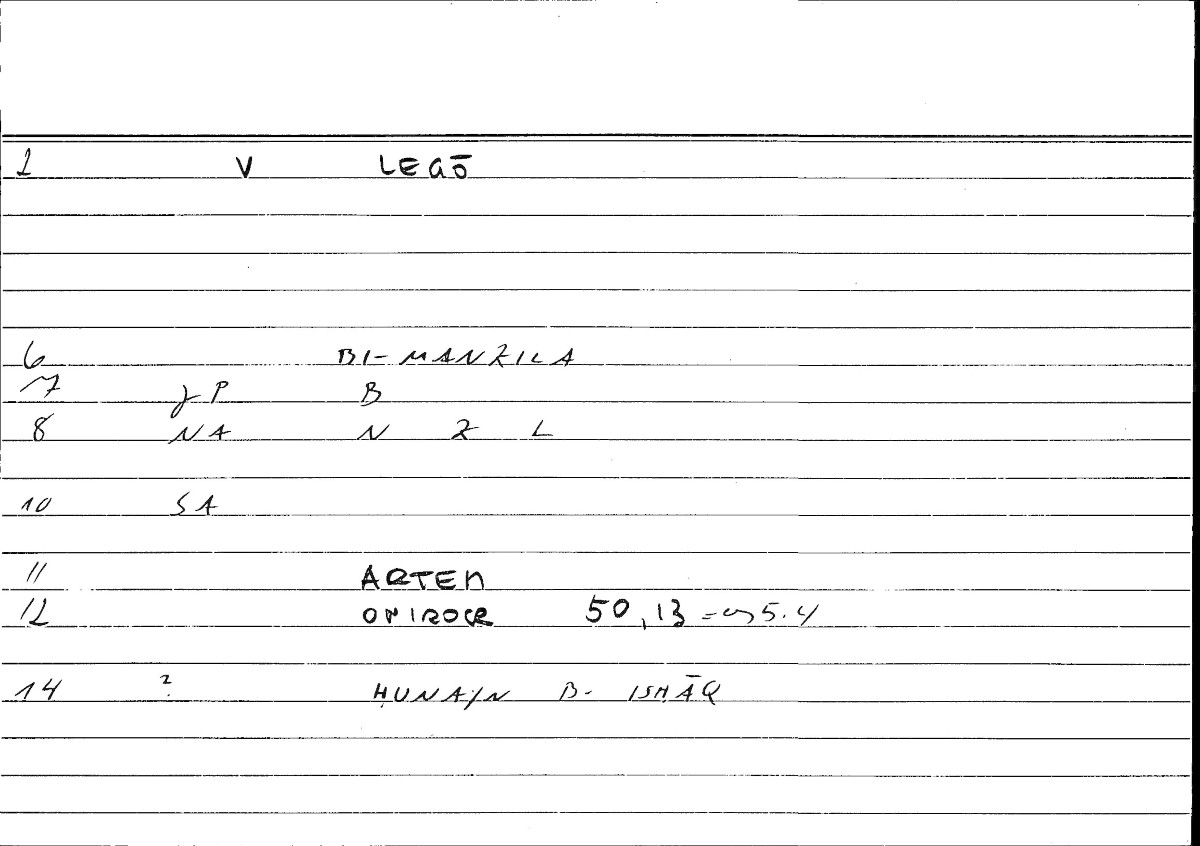 1 V LEGŌ
6 BI-MANZILA
7 P B
8 NA N Z L
10 SA
11 ARTEM
12 ONIROCR 50,13 = 5.4
14 2 ḤUNAIN B. ISḤĀQ